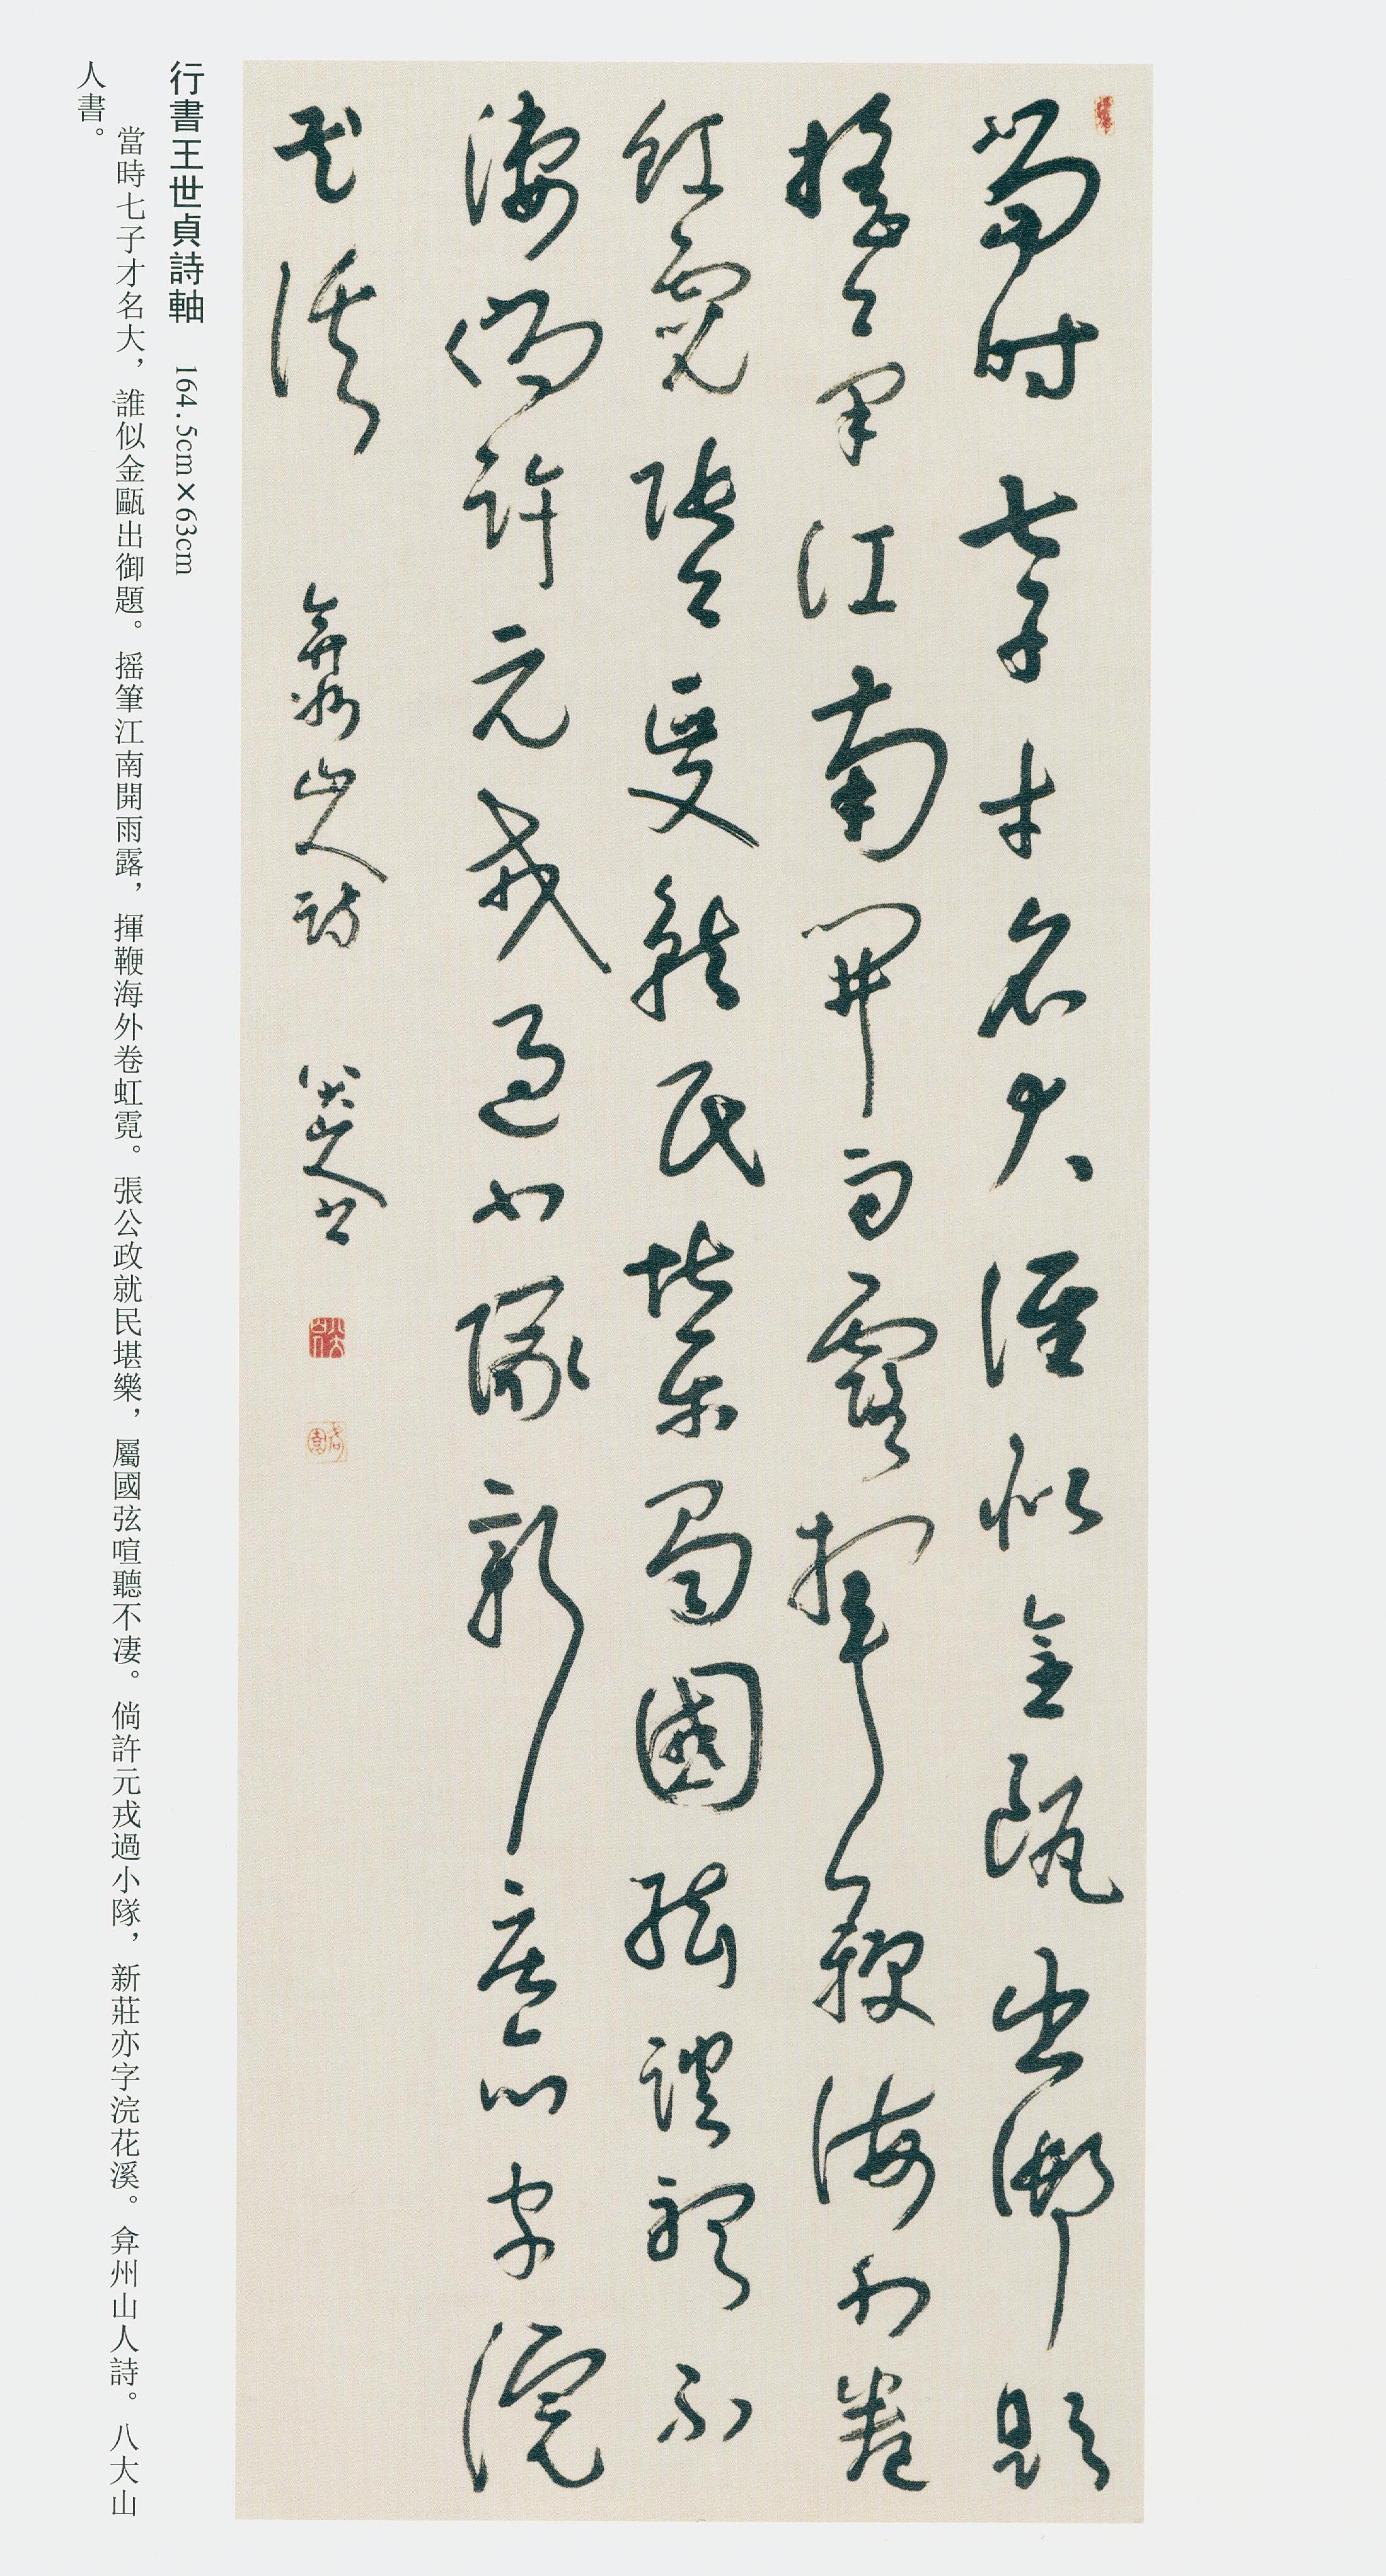 當時七子才名大誰似金甌出御題
搖筆江南開雨露揮鞭海外卷
虹霓張公政就民堪樂蜀國絃諠聽不
淒倘許元戎過小隊新莊亦字浣
花溪 弇州山人詩 八大山人書
八大山人
何園
行書王世貞詩軸 164.5cm×63cm
當時七子才名大，誰似金甌出御題。摇筆江南開雨露，揮鞭海外卷虹霓。張公政就民堪樂，屬國弦喧聽不凄。倘許元戎過小隊，新莊亦字浣花溪。弇州山人詩。八大山
人書。